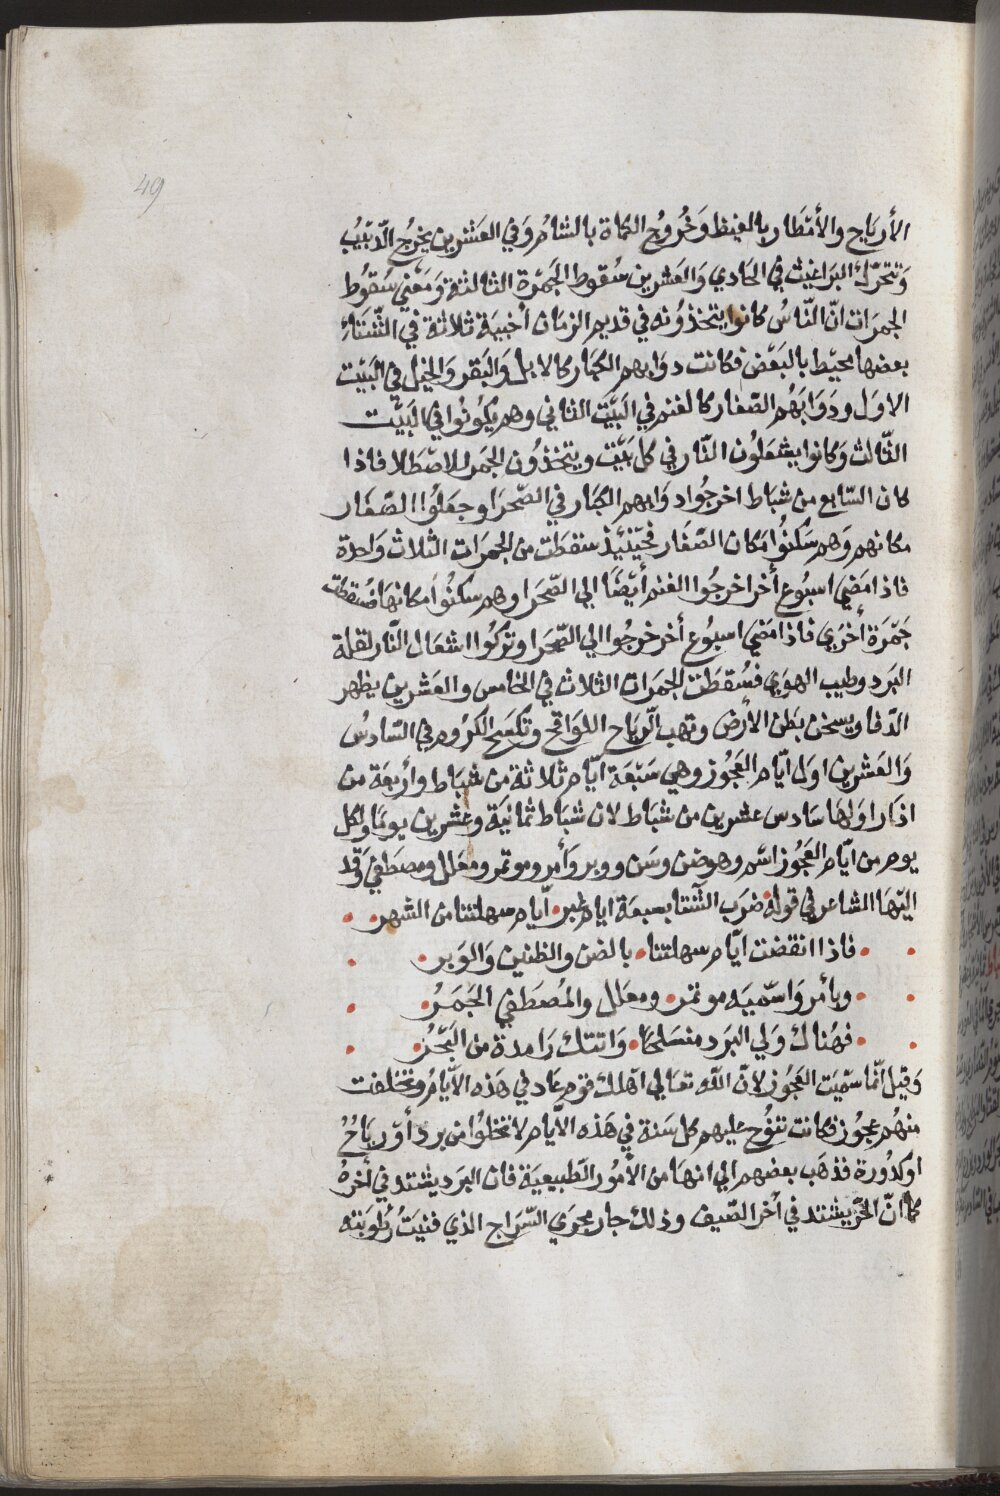 49
الأرياح والأمطار بالغيظ وَخُروُج الكماة بالشام وَفي العَشرين يخرُج الدّبيبُ
وَتتحرّك البرَاغيث في الحَادي وَالعَشرين سُقوط الجَمرَة الثالثة وَمَعْني سُقوُط
الجمرَات انّ النّاسُ كانوا يتخذوُنه في قديم الزمان أخبيَة ثلاثة في الشّتَاءِ
بعضها محيْط بالبَعْض فكانت دوَابهم الكبار كالابل وَالبَقر وَالخيْل في البَيْت
الاوَل ودَوَابَهُم الصّغار كالغنم في البَيْتِ الثاني وهم يكوُنوُا في البَيْت
الثّالث وَكانوا يشعَلوُن النّار في كل بَيْت ويتخذوُن الجمَر للاصْطلا فاذا
كان السّابع من شباط اخرجُوا دوَابهم الكبَار في الصّحرَا وجعَلوُا الصّغَار
مكانهم وَهم سَكنوُا مَكان الصّغَار فحيْنئيذ سَقطَت من الجمرَات الثلاث وَاحدة
فاذا مَضي اسبُوع أخر اخرجُوا الغنم أيْضًا الي الصّحرَا وهم سَكنوُا مكانها فسُقطَت
جَمْرَة أخرَي فاذا مَضي اسبُوع أخر خرجُوا الي الصّحرَا وترَكوُا اشعَال النّار لقلة
البَرد وطيب الهوَي فسُقطَت الجمرَات الثلاث في الخامس والعَشرين يظهر
الدّفا ويسخن بَطن الأرض وتهب الرّياح اللوَاقح وتكسَح الكرُوم في السّادسُ
وَالعَشرين اول ايّام العَجوُز وهي سَبْعَة ايّام ثلاثة من شبَاط وأربعَة من
اذار اوَلهَا سَادس عشرين من شباط لان شبَاط ثمانيَة وعشرين يومًا ولكل
يوم من ايّام العَجوُز اسْم وهو ضن وسَن ووبر وَأمر وموتمر ومعَلل ومصطَفي وَقد
اليْهَا الشاعر في قوله ضرَب الشّتا بسبعَة ايام غبر • ايّام سهلتنا من الشهر •
• فاذا انقضت ايّام سهلتنا • بالضن والظنين وَالوَبر •
• وبأمر وَاسّميَه موتمر • ومعَلل والمُصطَفي الجَمَرُ •
• فهُناك وَلي البَرد منسَلخًا • وَاتتك رَامدة من البَحْرُ •
وَقيل انّما سمّيَت العَجوُز لانّ اللّه تعَالي اهلك قوم عاد في هَذه الاَيّامُ وتخلفت
منهُم عجوُز فكانت تنوُح عليهم كل سَنة في هَذه الاَيّام لا تخلوُا من برد أوْ رياحُ
اوكدُورة فذهَب بعضهم الي انهَا من الأموُر الطّبيعيَة فان البَرد يشتد في أخرهُ
كما انّ الحَرّ يشتد في أخر الصّيف وذلك جار مجرَي السّرَاج الذي فنيَتُ رُطوُبَته